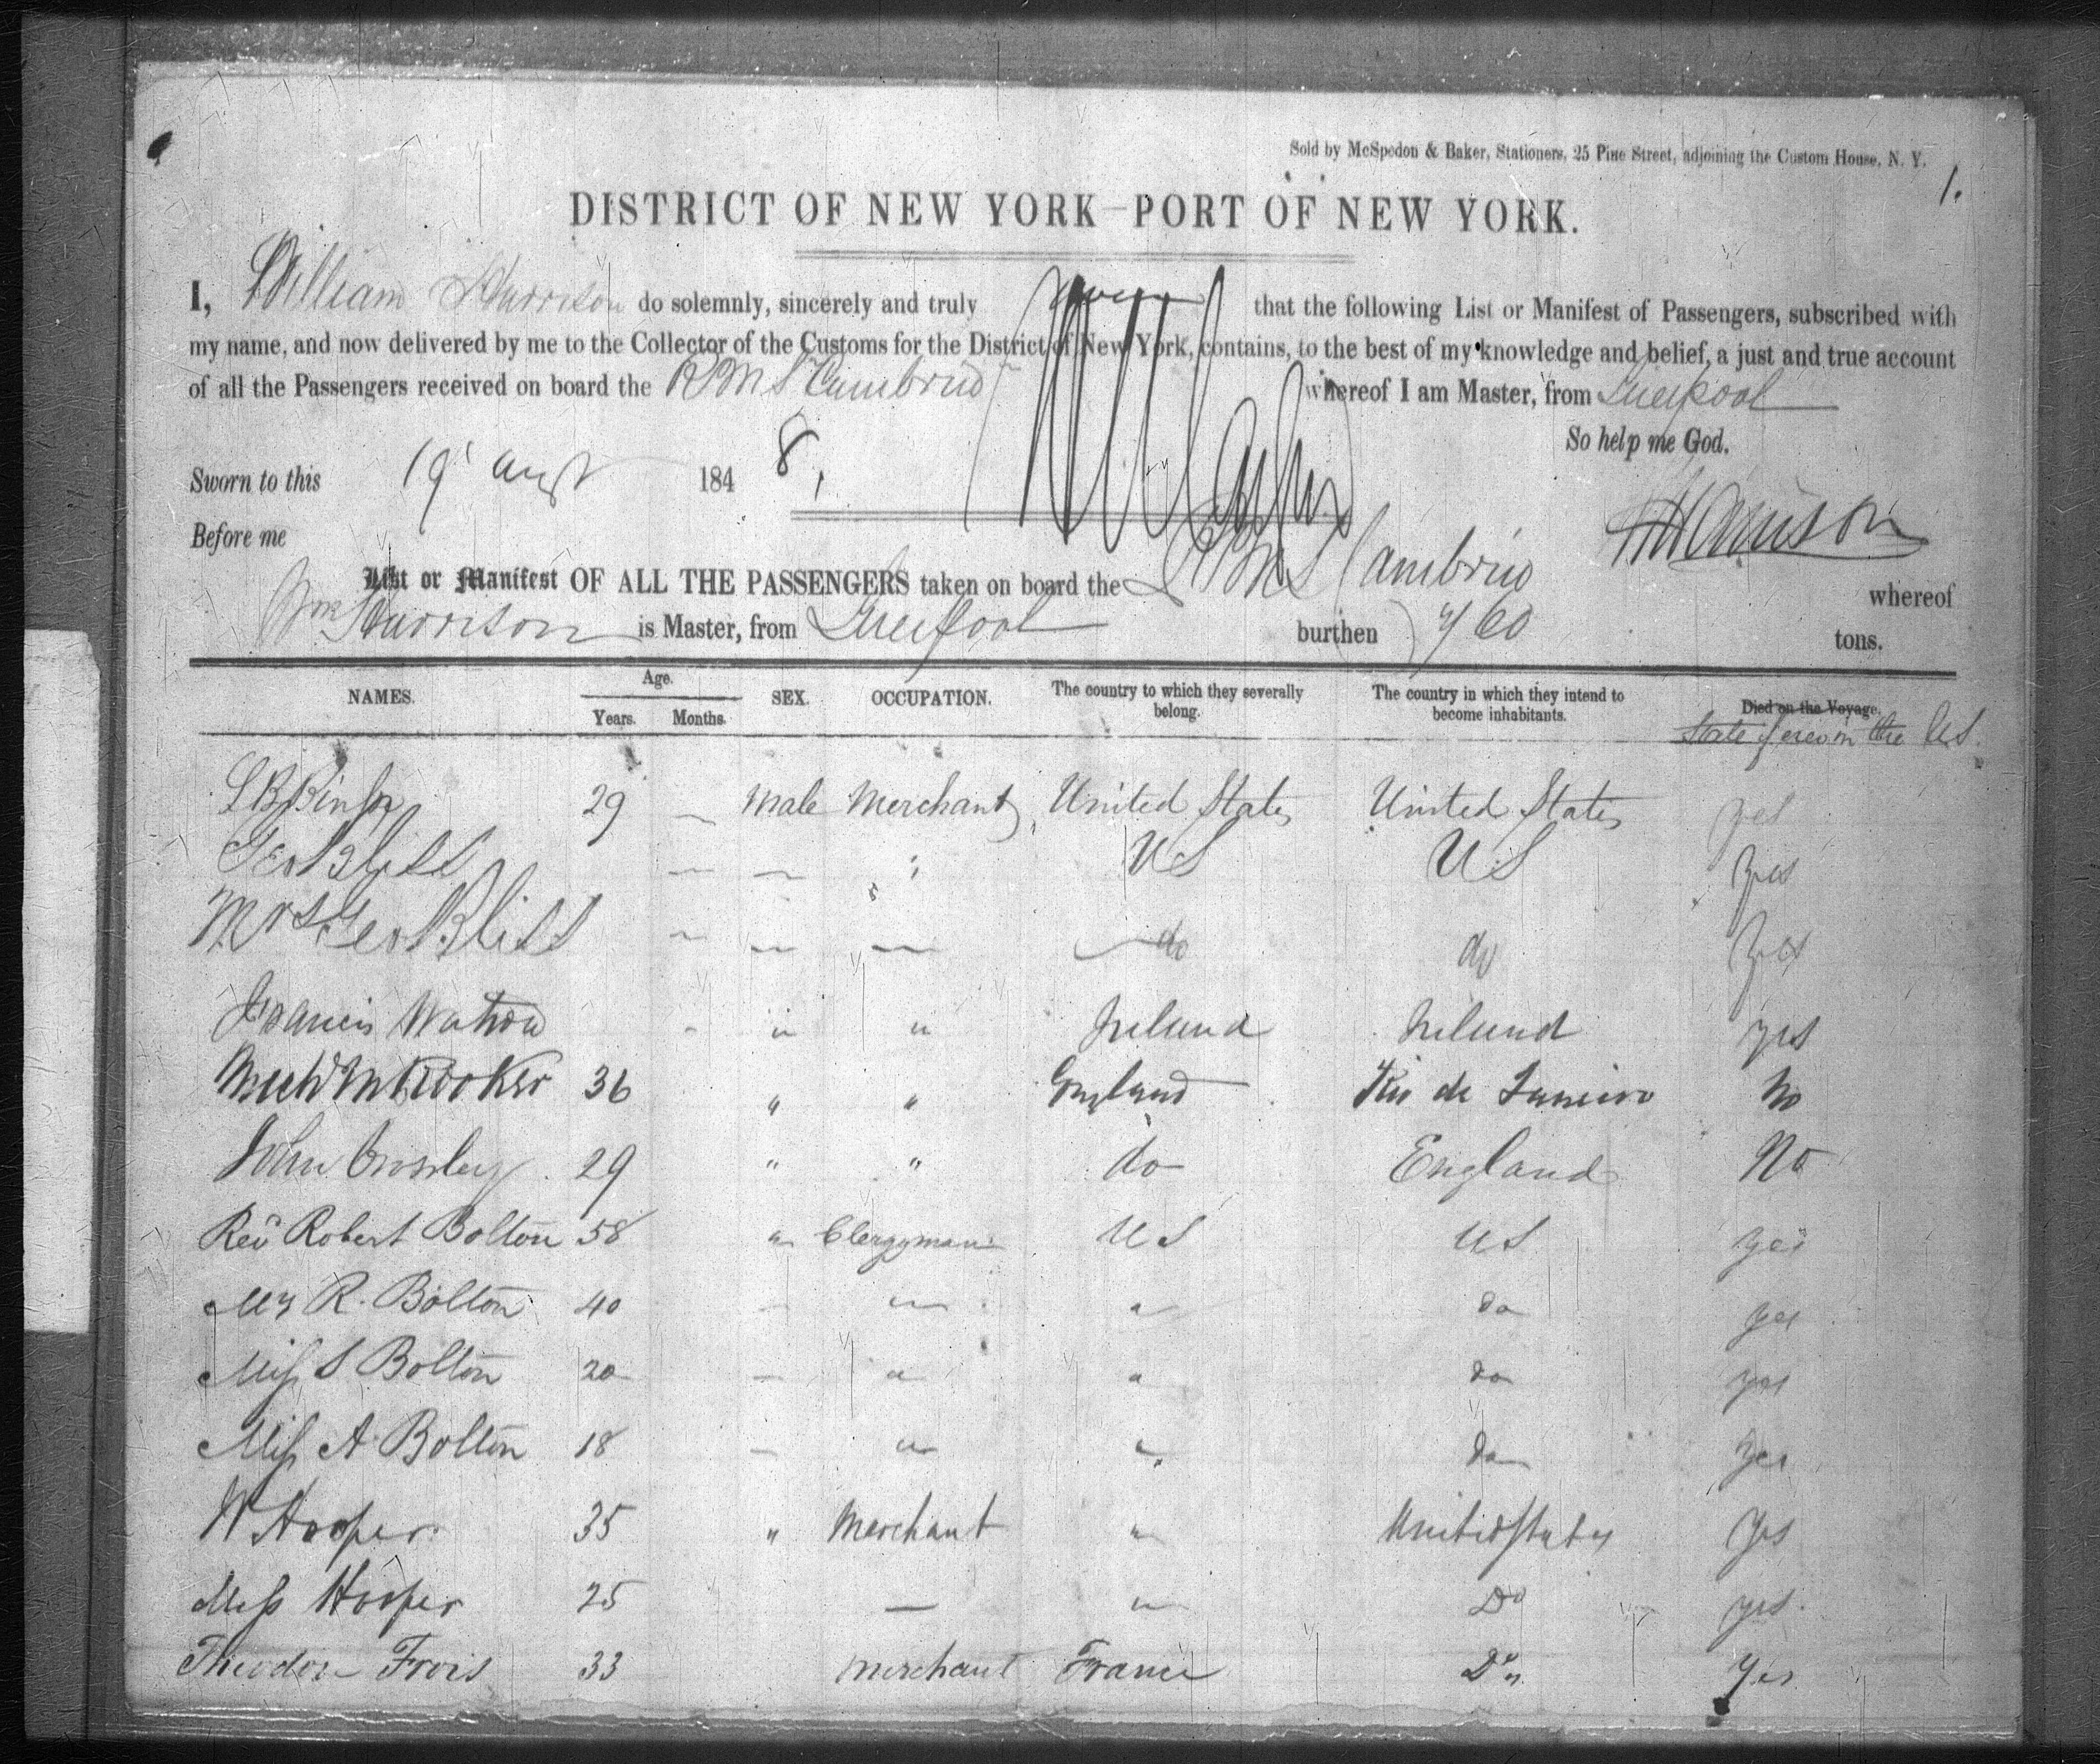 Sold by McSpedon & Baker, Stationers, 25 Pine Street, adjoining the Custom House, N. Y.
1.
DISTRICT OF NEW YORK—PORT OF NEW YORK.
I, William Harrison do solemnly, sincerely and truly swear that the following List or Manifest of Passengers, subscribed with
my name, and now delivered by me to the Collector of the Customs for the District of New York, contains, to the best of my knowledge and belief, a just and true account
of all the Passengers received on board the RMS Cambria whereof I am Master, from Liverpool
So help me God.
Sworn to this 19 Augt 1848,
Harrison
Before me
List or Manifest OF ALL THE PASSENGERS taken on board the RMS Cambria whereof
Wm Harrison is Master, from Liverpool burthen tons.
NAMES. Age. Years. Months. SEX. OCCUPATION. The country to which they severally belong. The country in which they intend to become inhabitants. Died on the Voyage.
in the US.
29 — Male Merchant United States United States yes
Geo Bliss — — " US US Yes
Mrs Geo Bliss — — — do do Yes
Francis Watson " " Ireland Ireland yes
36 " " England Rio de Janeiro No
John Crossley 29 " " do England No
Revd Robert Bolton 58 " Clergyman US US yes
Mrs R. Bolton 40 — " " do yes
Miss S Bolton 20 — " " do yes
Miss A Bolton 18 — " " do Yes
W Hooper 35 " Merchant " United States Yes
Miss Hooper 25 — " Do yes.
Theodore Frois 33 merchant France Do Yes